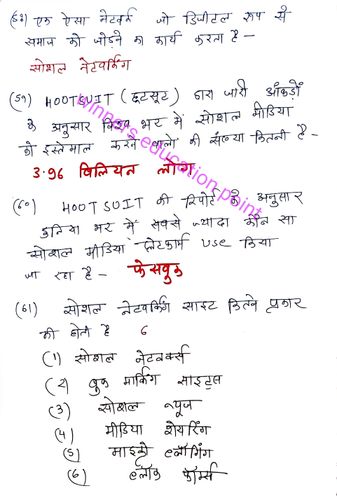 (58) एक ऐसा नेटवर्क जो डिजीटल रूप से
समाज को जोड़ने का कार्य करता है -
सोशल नेटवर्किंग
(59) HOOTSUIT (हूटसूट) द्वारा जारी आंकड़ों
के अनुसार विश्व भर में सोशल मीडिया
को इस्तेमाल करने वालो की संख्या कितनी है -
3.96 बिलियन लोग
(60) HOOTSUIT की रिपोर्ट के अनुसार
दुनिया भर में सबसे ज्यादा कौन सा
सोशल मीडिया प्लेटफार्म use किया
जा रहा है - फेसबुक
(61) सोशल नेटवर्किंग साइट कितने प्रकार
की होती है 6
(1) सोशल नेटवर्क्स
(2) बुक मार्किंग साइट्स
(3) सोशल न्यूज
(4) मीडिया शेयरिंग
(5) माइक्रो ब्लॉगिंग
(6) ब्लॉक फॉर्म्स
winners education point